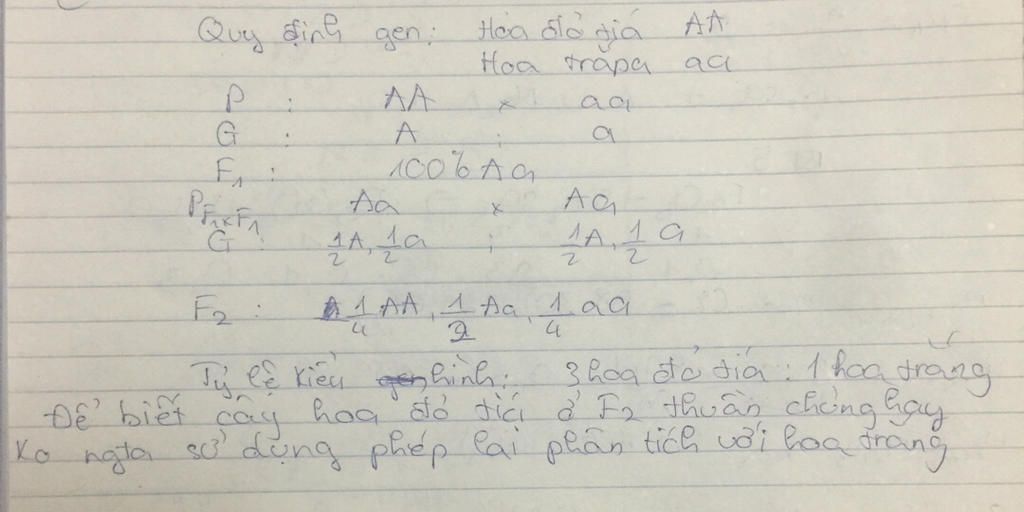 Quy định gen: Hoa đỏ tiá AA
Hoa trắpa aa
P : AA × aa
G : A ; a
F1 : 100% Aa
PF1×F1 Aa × Aa
G : 1/2 A, 1/2 a ; 1/2 A, 1/2 a
F2 : 1/4 AA, 1/2 Aa, 1/4 aa
Tỷ lệ kiểu hình: 3 hoa đỏ tiá : 1 hoa trắng
Để biết cây hoa đỏ tiá ở F2 thuần chủng hay
Ko ngta sử dụng phép lai phân tích với hoa trắng